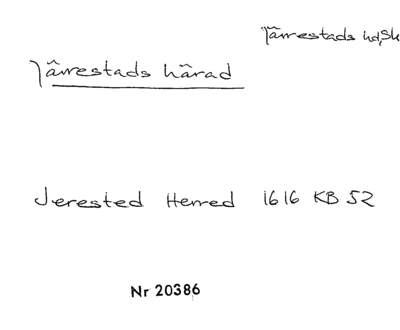 Järrestads hd, Sk
Järrestads härad
Jerested Herred 1616 KB 52
Nr 20386